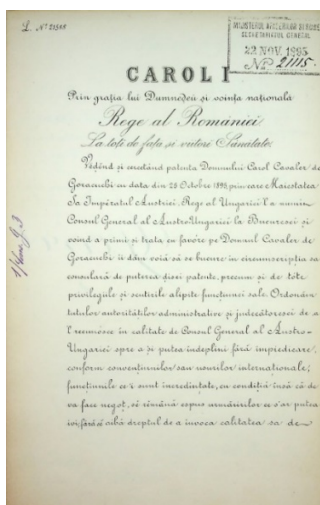 L. Nº 21588
MINISTERUL AFACERILOR STREINE
SECRETARIATUL GENERAL
22 NOV. 1895
Nº 21115.
CAROL I
Prin grația lui Dumnedeu și voința națională
Rege al României
La toți de față și viitori Sănătate:
Vedênd și cercetând patenta Domnului Carol Cavaler de
Goracuchi cu data din 25 Octobre 1895, prin care Maiestatea
Sa Impĕratul Austriei, Rege al Ungariei l'a numit
Consul General al Austro-Ungariei la Bucuresci și
voind a primi și trata cu favore pe Domnul Cavaler de
Goracuchi îi dăm voiă să se bucure în circumscripția sa
consulară de puterea disei patente, precum și de tote
privilegiile și scutirile alipite funcțiunei sale. Ordonăm
tutulor autorităților administrative și judecătoresci de a
'l recunósce în calitate de Consul General al Austro-
Ungariei spre a 'și putea îndeplini fără împiedicare,
conform convențiunilor sau usurilor internaționale,
funcțiunile ce 'i sunt încredințate, cu condiția însă că de
va face negoț, să rămână supus urmăririlor ce s'ar putea
ivi, fără să aibă dreptul de a invoca calitatea sa de